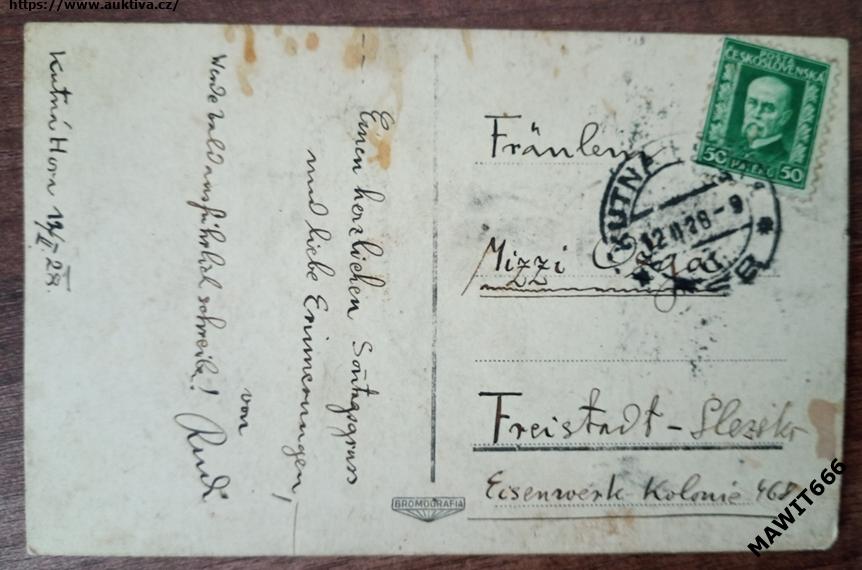 https://www.auktiva.cz/
Kutná Hora 12/II 28.
Einen herzlichen Sontagsgruss
und liebe Erinnerungen,
von
Rudi
Werde bald ausführlich schreiben!
Fräulein
Mizzi
Freistadt - Slezsko
Eisenwerk Kolonie 468
POŠTA
ČESKOSLOVENSKÁ
50 HALÉŘŮ 50
KUTNÁ
12 II 28 - 9
BROMOGRAFIA
MAWIT666